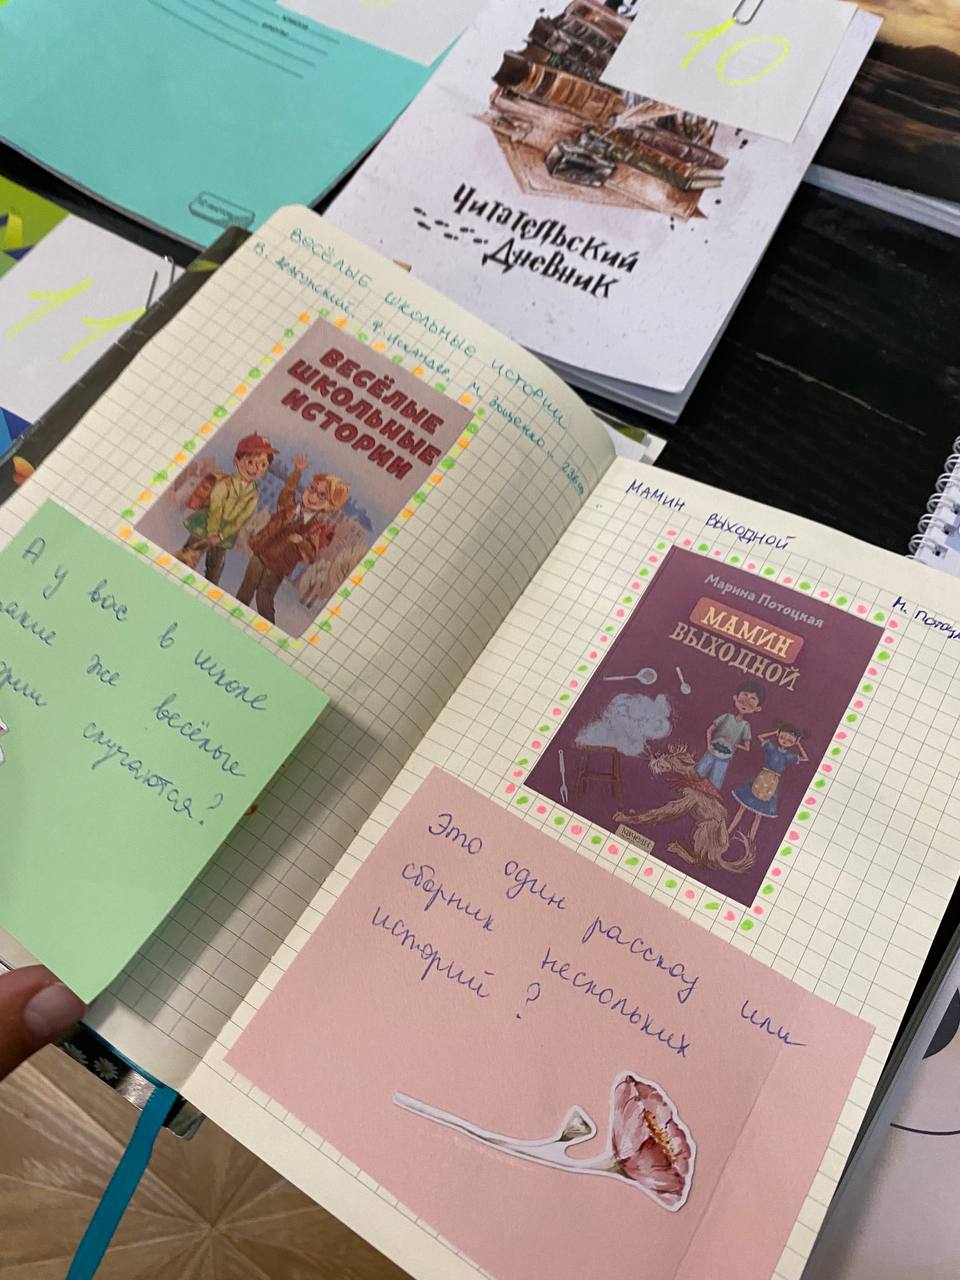 класса
школы
12 листов
10
Читательский
Дневник
11
ВЕСЁЛЫЕ ШКОЛЬНЫЕ ИСТОРИИ
В. Драгунский, Ф. Искандер, М. Зощенко
ВЕСЁЛЫЕ
ШКОЛЬНЫЕ
ИСТОРИИ
А у вас в школе
такие же весёлые
случаются?
МАМИН ВЫХОДНОЙ
Марина Потоцкая
МАМИН
ВЫХОДНОЙ
качели
Это один рассказ или
сборник нескольких
историй ?